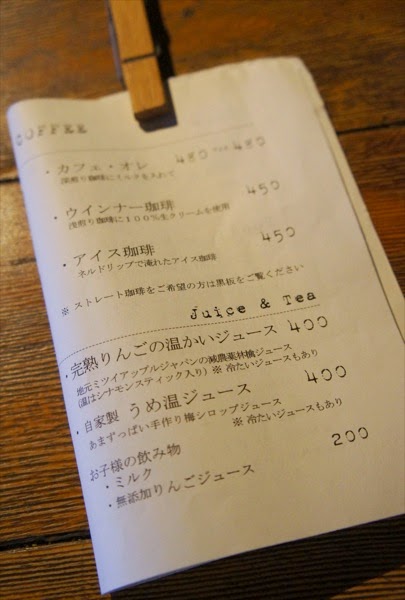 COFFEE
・カフェ・オレ 480 480
深煎り珈琲にミルクを入れて
・ウインナー珈琲 450
浅煎り珈琲に100%生クリームを使用
・アイス珈琲 450
ネルドリップで淹れたアイス珈琲
※ ストレート珈琲をご希望の方は黒板をご覧ください
Juice & Tea
・完熟りんごの温かいジュース 400
地元ミツイアップルジャパンの減農薬林檎ジュース
(温はシナモンスティック入り) ※ 冷たいジュースもあり
・自家製 うめ温ジュース 400
あまずっぱい手作り梅シロップジュース
※ 冷たいジュースもあり
お子様の飲み物 200
・ミルク
・無添加りんごジュース